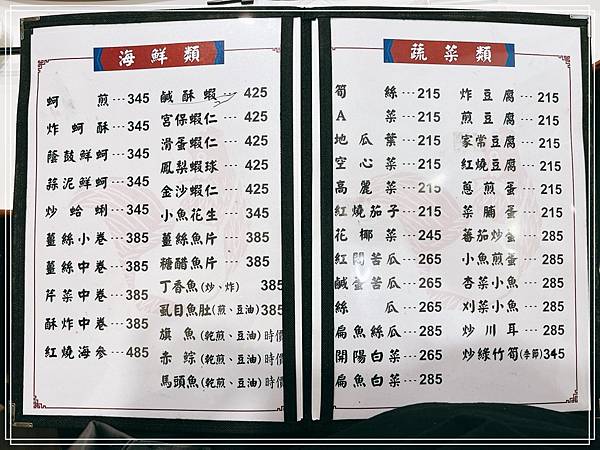 海鮮類
蚵煎…345
炸蚵酥…345
蔭鼓鮮蚵…345
蒜泥鮮蚵…345
炒蛤蜊…345
薑絲小卷…385
薑絲中卷…385
芹菜中卷…385
酥炸中卷…385
紅燒海參…485
鹹酥蝦…425
宮保蝦仁…425
滑蛋蝦仁…425
鳳梨蝦球…425
金沙蝦仁…425
小魚花生…345
薑絲魚片…385
糖醋魚片…385
丁香魚(炒、炸) 385
虱目魚肚(煎、豆油)385
旗魚(乾煎、豆油)時價
赤鯮(乾煎、豆油)時價
馬頭魚(乾煎、豆油)時價
蔬菜類
筍絲…215
A菜…215
地瓜葉…215
空心菜…215
高麗菜…215
紅燒茄子…215
花椰菜…245
紅悶苦瓜…265
鹹蛋苦瓜…265
絲瓜…265
扁魚絲瓜…285
開陽白菜…265
扁魚白菜…285
炸豆腐…215
煎豆腐…215
家常豆腐…215
紅燒豆腐…215
蔥煎蛋…215
菜脯蛋…215
蕃茄炒蛋…285
小魚煎蛋…285
杏菜小魚…285
刈菜小魚…285
炒川耳…285
炒綠竹筍(季節)345